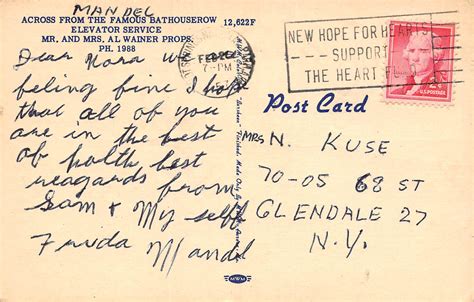 MANDEL
ACROSS FROM THE FAMOUS BATHOUSEROW
ELEVATOR SERVICE
MR. AND MRS. AL WAINER PROPS.
PH. 1988
12,622F
FEB
7-PM
NEW HOPE FOR HEARTS
SUPPORT
THE HEART
2¢
U.S. POSTAGE
Post Card
Dear Nora We
feling fine I hop
that all of you
are in the best
of halth best
reagards from
Sam & My self
Frieda Mandl
MRS N. KUSE
70-05 68 ST
GLENDALE 27
N.Y.
MWM